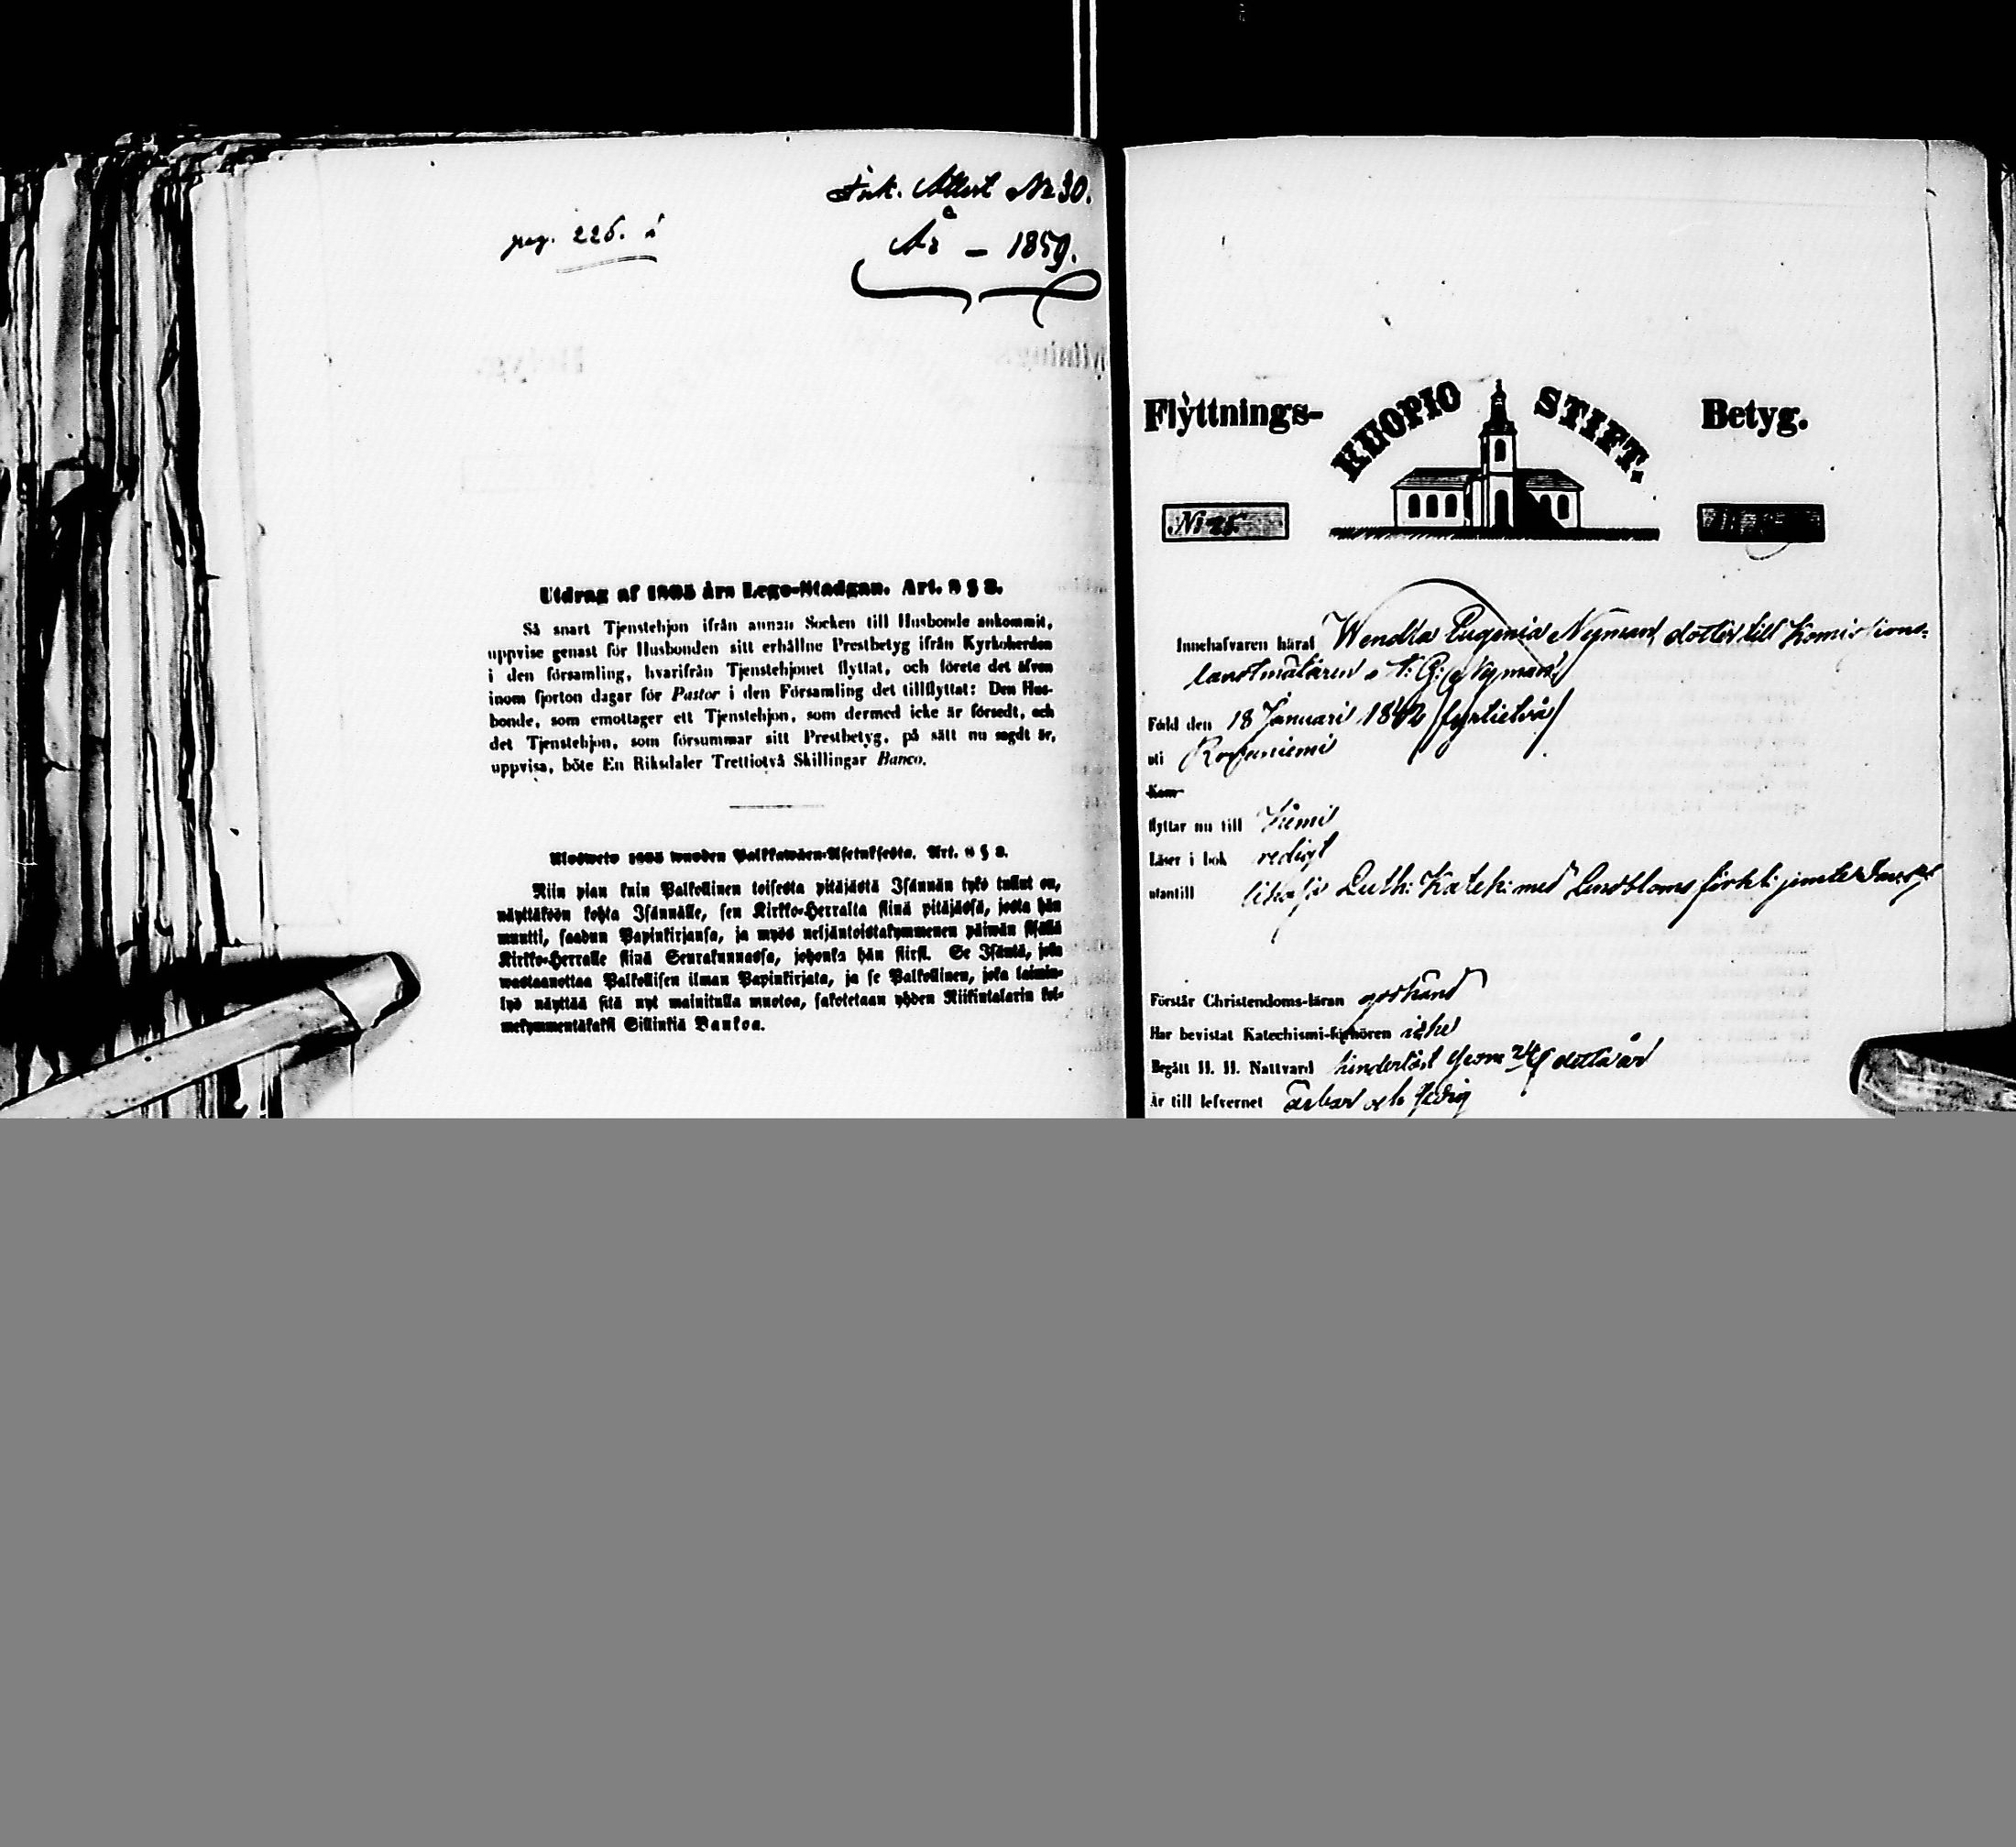 Ink. Attest No 30.
År – 1859.
pag. 226.
Utdrag af 1805 års Lego-Stadgan. Art. 8 § 3.
Så snart Tjenstehjon ifrån annan Socken till Husbonde ankommit,
uppvise genast för Husbonden sitt erhållne Prestbetyg ifrån Kyrkoherden
i den församling, hvarifrån Tjenstehjonet flyttat, och förete det äfven
inom fjorton dagar för Pastor i den Församling det tillflyttat: Den Hus-
bonde, som emottager ett Tjenstehjon, som dermed icke är försedt, och
det Tjenstehjon, som försummar sitt Prestbetyg, på sätt nu sagdt är,
uppvisa, böte En Riksdaler Trettiotvå Skillingar Banco.
Ulosweto 1805 wuoden Palkkawäen-Asetuksesta. Art. 8 § 3.
Niin pian kuin Palkollinen toisesta pitäjästä Isännän tykö tullut on,
näyttäköön kohta Isännälle, sen Kirkko-Herralta siinä pitäjässä, josta hän
muutti, saadun Papinkirjansa, ja myös neljäntoistakymmenen päiwän sisällä
Kirkko-Herralle siinä Seurakunnassa, johonka hän siirsi. Se Isäntä, joka
wastaanottaa Palkollisen ilman Papinkirjata, ja se Palkollinen, joka laimin-
lyö näyttää sitä nyt mainitulla muotoa, sakotetaan yhden Riikintalarin kol-
mekymmentäkaksi Sillinkiä Bankoa.
Flyttnings- KUOPIO STIFT. Betyg.
No 25.
Innehafvaren häraf Wendla Eugenia Nyman, dotter till Komissions-
landtmätaren Nyman
Född den 18 Januari 1842 /fyrtietvå/
uti Rovaniemi
Kom
flyttar nu till Kemi
Läser i bok redigt
utantill likaså Luth: Katek: med Lindbloms förkl: jemte
Förstår Christendoms-läran godkänd
Har bevistat Katechismi-förhören icke
Begått H. H. Nattvard hinderlöst detta år
Är till lefvernet ärbar och ledig